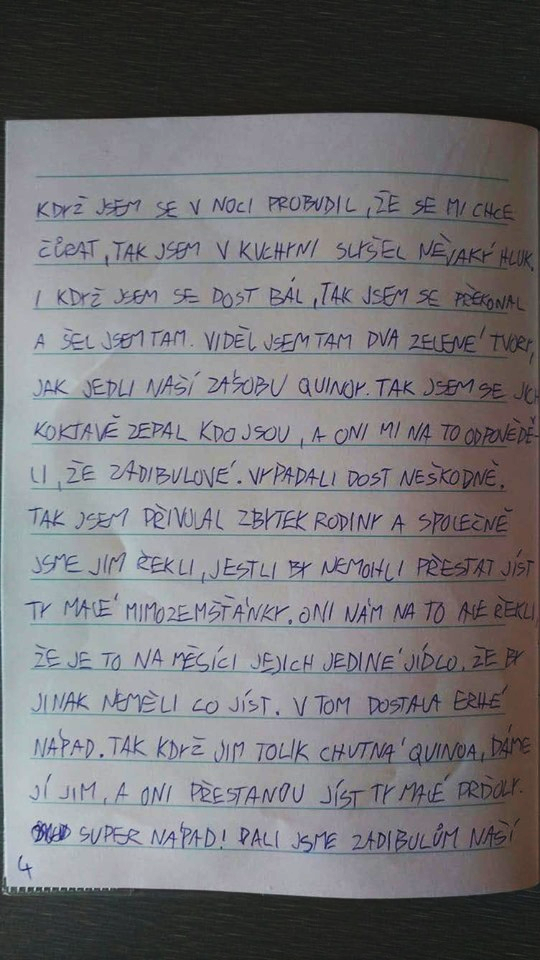 KDYŽ JSEM SE V NOCI PROBUDIL, ŽE SE MI CHCE
ČŮRAT, TAK JSEM V KUCHYNI SLYŠEL NĚJAKÝ HLUK.
I KDYŽ JSEM SE DOST BÁL, TAK JSEM SE PŘEKONAL
A ŠEL JSEM TAM. VIDĚL JSEM TAM DVA ZELENÉ TVORY,
JAK JEDLI NAŠÍ ZÁSOBU QUINOY. TAK JSEM SE JICH
KOKTAVĚ ZEPAL KDO JSOU, A ONI MI NA TO ODPOVĚDĚ-
LI, ŽE ZADIBULOVÉ. VYPADALI DOST NEŠKODNĚ.
TAK JSEM PŘIVOLAL ZBYTEK RODINY A SPOLEČNĚ
JSME JIM ŘEKLI, JESTLI BY NEMOHLI PŘESTAT JÍST
TY MALÉ MIMOZEMŠŤÁNKY. ONI NÁM NA TO ALE ŘEKLI,
ŽE JE TO NA MĚSÍCI JEJICH JEDINÉ JÍDLO. ŽE BY
JINAK NEMĚLI CO JÍST. V TOM DOSTALA ERHÉ
NÁPAD. TAK KDYŽ JIM TOLIK CHUTNÁ QUINOA, DÁME
JÍ JIM, A ONI PŘESTANOU JÍST TY MALÉ PRĎOLY.
SUPER NÁPAD! DALI JSME ZADIBULŮM NAŠÍ
4